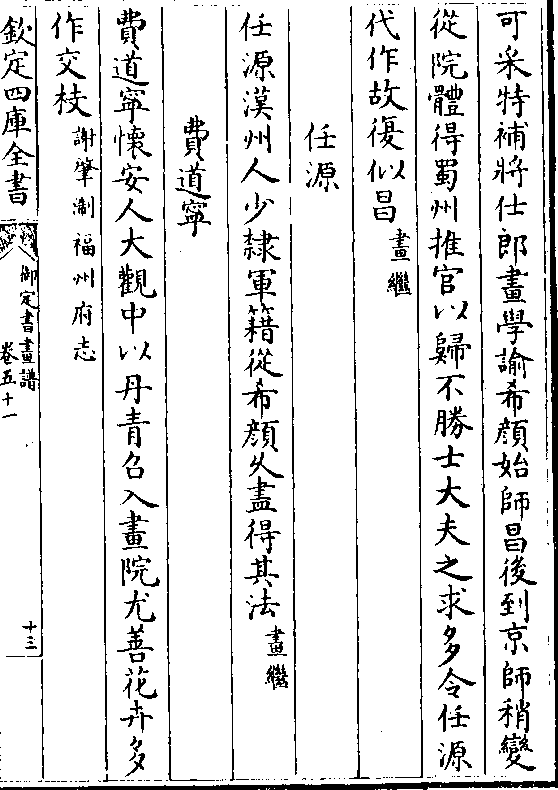 可采特補將仕郎畫學諭希顔始師昌後到京師稍變
從院體得蜀州推官以歸不勝士大夫之求多令任源
代作故復似昌畫繼
任源
任源漢州人少隸軍籍從希顔久盡得其法畫繼
費道寧
費道寧懷安人大觀中以丹青召入畫院尤善花卉多
作交枝謝肇淛福州府志
欽定四庫全書
御定書畫譜
卷五十一
十三